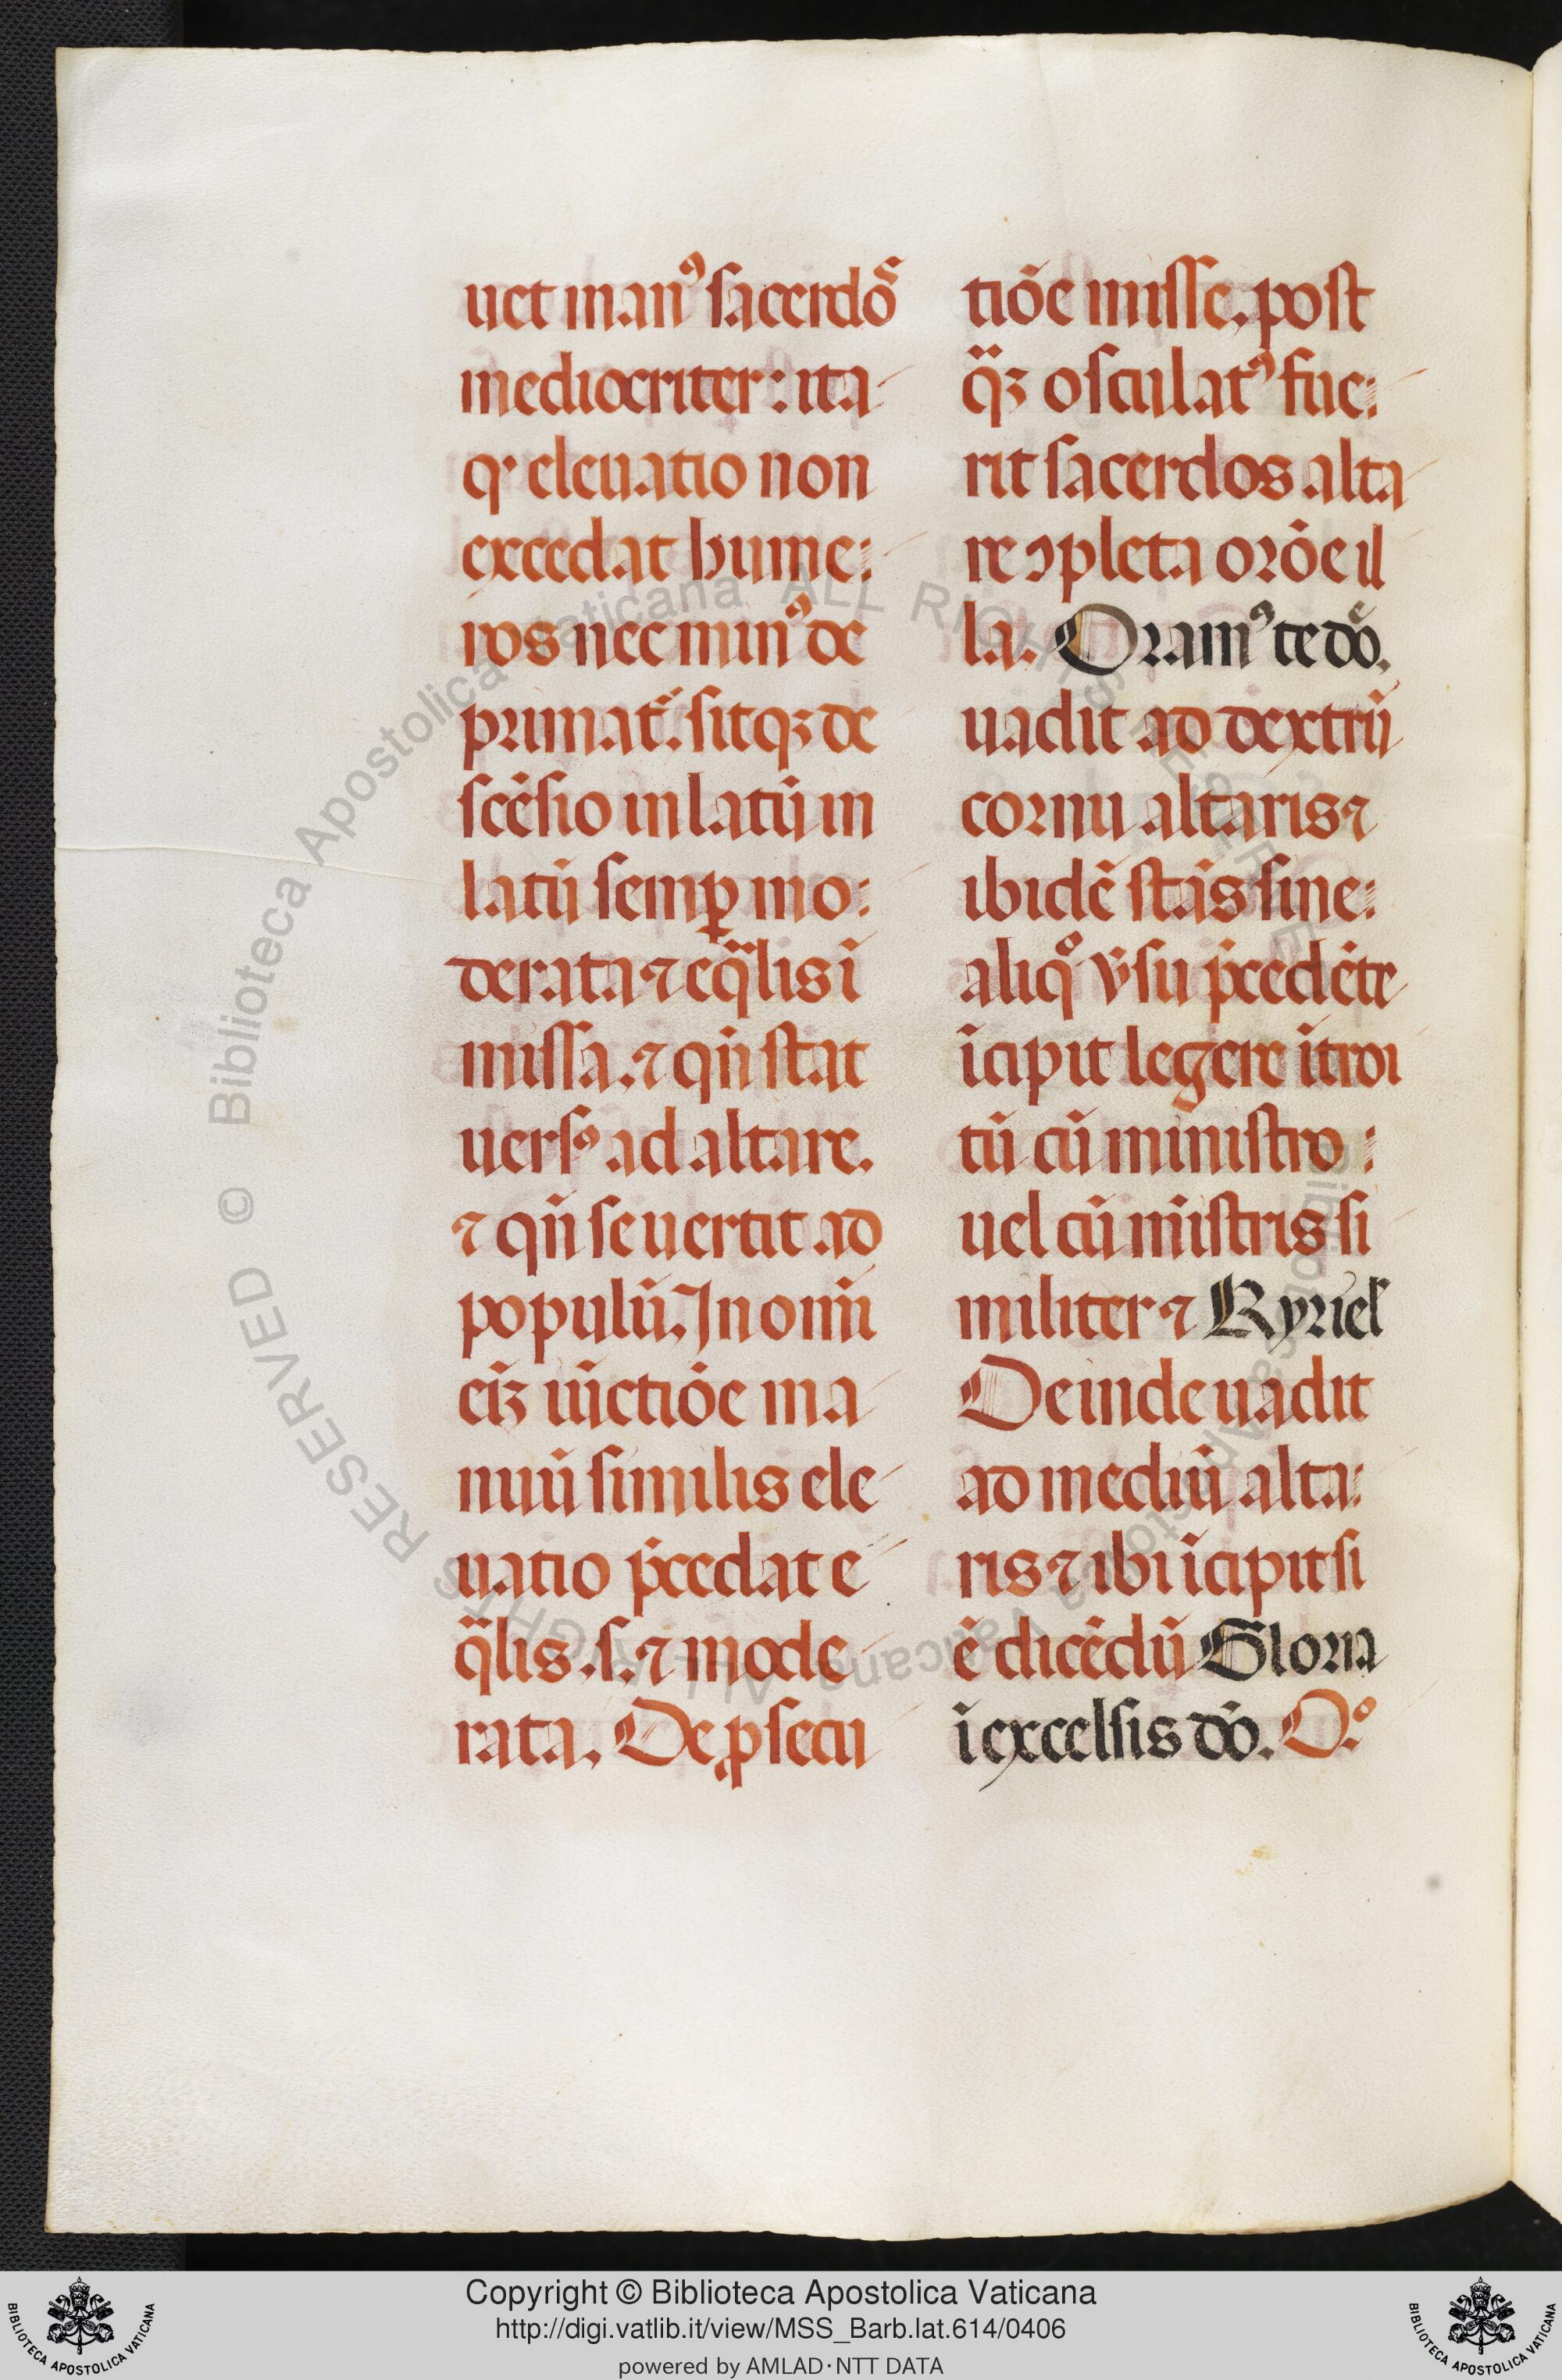 uet manꝰ sacerdoˢ
mediocriter: ita
qͥ eleuatio non
excedat hume:
ros nec minꝰ de
primat᷑. sitqꝫ de
scēsio in latū in
latū semꝑ mo:
derata ⁊ eqͣlis ī
missa. ⁊ qn̄ stat
uersꝰ ad altare.
⁊ qn̄ se uertit ad
populū. In omni
eiꝫ iūctiōe ma
nuū similis ele
uatio p̄cedat e
qͣlis .s. ⁊ mode
rata. De ꝓsecu
tiōe misse. post
qͣꝫ osculatꝰ fue:
rit sacerdos alta
re ꝯpleta orōe il
la. Oramꝰ te dō.
uadit ad dextrū
cornu altaris ⁊
ibidē stās sine:
aliqͦ v̄su p̄cedēte
īcipit legere ītroi
tū cū ministro:
uel cū mīstris si
militer ⁊ Kyriel
Deinde uadit
ad mediū alta:
ris ⁊ ibi īcipit si
ē dicēdū Gloria
ī excelsis dō. Oͦ.
Copyright © Biblioteca Apostolica Vaticana
http://digi.vatlib.it/view/MSS_Barb.lat.614/0406
powered by AMLAD·NTT DATA
BIBLIOTECA APOSTOLICA VATICANA
BIBLIOTECA APOSTOLICA VATICANA
© Biblioteca Apostolica Vaticana ALL RIGHTS RESERVED
© Biblioteca Apostolica Vaticana ALL RIGHTS RESERVED